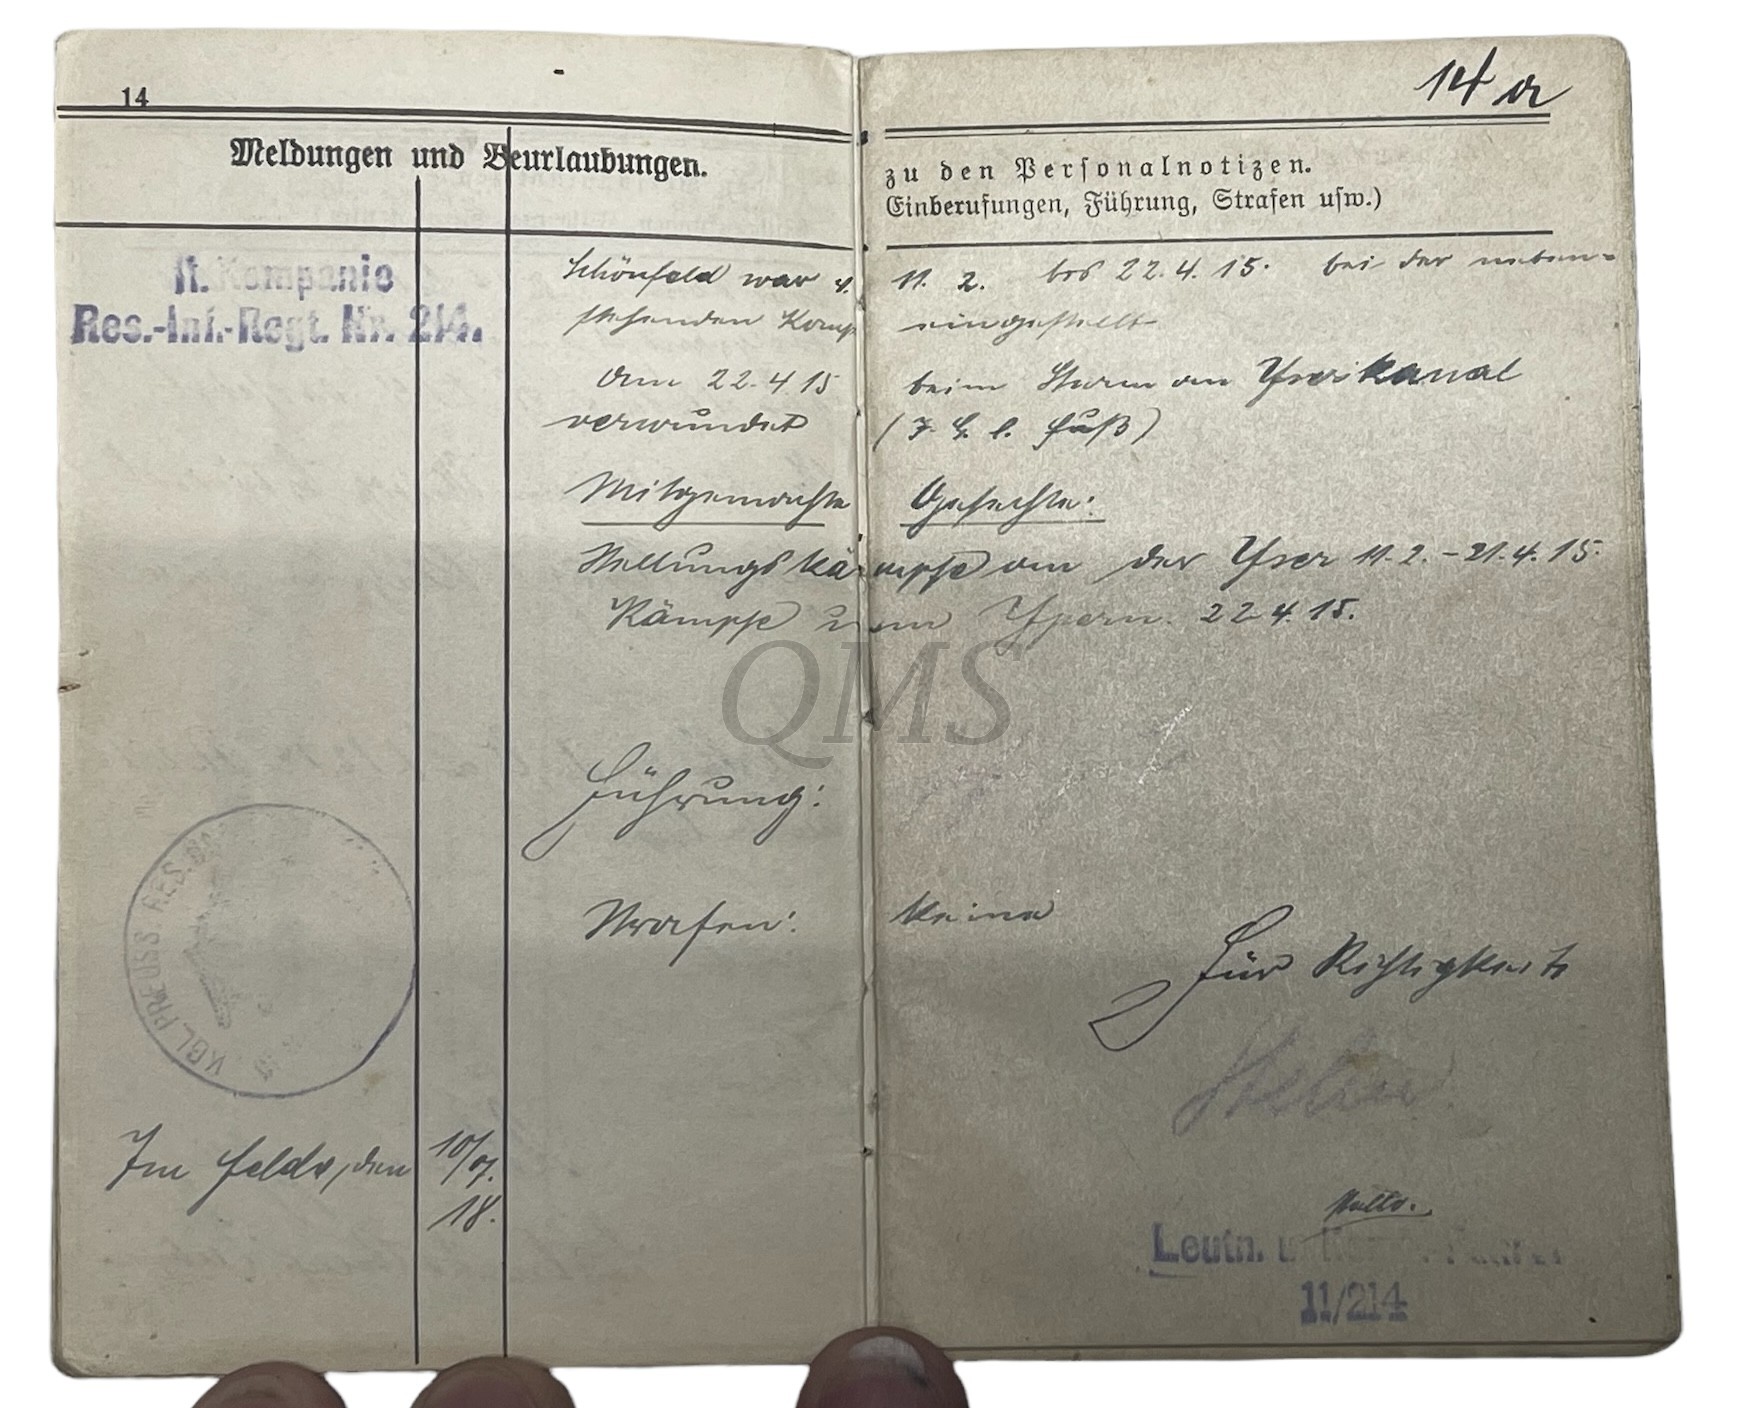 14
14 a
Meldungen und Beurlaubungen.
zu den Personalnotizen.
Einberufungen, Führung, Strafen usw.)
11. Kompanie
Res.-Inf.-Regt. Nr. 214.
Schönfeld war v. 11. 2. bis 22. 4. 15. bei der neben-
stehenden Komp eingestellt
Am 22. 4 15 beim Sturm am Yserkanal
verwundet (I. G. l. Fuß)
Mitgemachte Gefechte:
Stellungskämpfe an der Yser 11. 2. - 21. 4. 15.
Kämpfe um Ypern. 22 4. 15.
QMS
Führung:
Strafen: keine
Für Richtigkeit
KGL. PREUSS. RES.
Im Felde, den 10/
18.
Leutn. u.
11/214